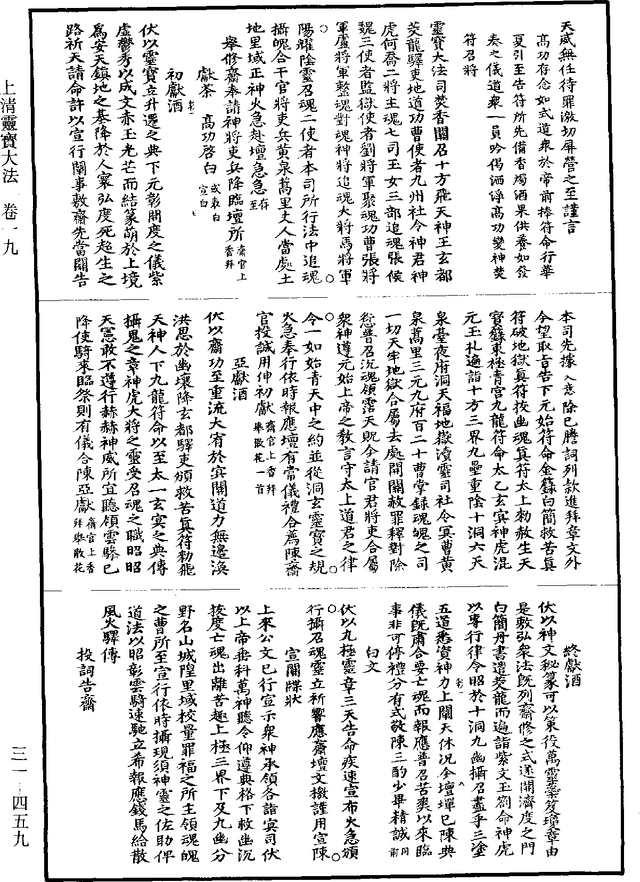 天威無任待罪激切屏營之至謹言
高功存念如式道衆於帝前捧符命行華
夏引至告符所先備香燭酒果供養如發
奏之儀道衆一員吟偈洒淨高功變神焚
符召將
靈寶大法司焚香關召十方飛天神王玄都
茭龍驛吏地道功曹使者九州社令神君神
虎何喬二將主魂七司玉女三部追魂張侯
魏三使者監獄使者劉將軍聚魂功曹張將
軍盧將軍整魂對魂神將追魂大將馬將軍
陽耀陰靈召魂二使者本司所行法中追魂
攝魄合干官將吏兵黄泉萬里丈人當處土
地里域正神火急赴壇急急存召
舉修齋奉請神將吏兵降臨壇所齋官上香拜
獻茶 高功啓白或表白宣白
初獻酒
伏以靈寶立升遷之典下元彰開度之儀紫
虛鬱秀以成文赤玉光芒而結篆萌於上境
爲安天鎮地之基降於人寰弘度死超生之
路祈天請命許以宣行關事敷齋先當關告
本司先據入意除已謄詞列款進拜章文外
今望取旨告下元始符命金籙白簡救苦真
符破地獄真符按幽魂真符太上勑赦生天
寶籙東極青宮九龍符命太乙玄冥神虎混
元玉札遍詣十方三界九壘重陰十洞六天
泉臺夜府洞天福地嶽瀆靈司社令冥曹黄
泉萬里三元九府百二十曹掌録魂魄之司
一切天牢地獄合屬去處開關赦罪釋對除
愆普召沉魂領霑天貺今請官君將吏合屬
衆神遵元始上帝之敎言守太上道君之律
令一如始青天中之約並從洞玄靈寶之規
火急奉行依時報應壇有常儀禮合爲陳齋
官投誠用伸初獻齋官上香拜舉散花一首
亞獻酒
伏以齋功至重流大宥於冥關道力無邊渙
洪恩於幽壤降玄都驛吏頒救苦真符勑飛
天神人下九龍符命以至太一玄冥之典傳
攝鬼之章神虎大將之靈受召魂之職昭昭
天憲敢不遵行赫赫神威所宜聽領雲驂已
降使騎來臨祭則有儀合陳亞獻齋官上香拜舉散花
終獻酒
伏以神文秘篆可以策役萬靈蘂笈瓊章由
是敷弘衆法旣列齋修之式遂開濟度之門
白簡丹書遣茭龍而遍詣紫文玉劄命神虎
以專行律令昭於十洞九幽攝召盡乎三塗
五道悉資神力上闡天休況今壇墠已陳典
儀旣肅合要亡魂而報應普召苦爽以來臨
事非可停禮分有式敬陳三酌少畢精誠同前
白文
伏以九極靈章三天告命疾速宣布火急頒
行攝召魂靈立祈響應齋壇文檄謹用宣陳
宣關牒狀
上來公文已行宣示衆神承領各詣冥司伏
以上帝垂科萬神聽令仰遵典格下救幽沉
拔度亡魂出離苦趣上極三界下及九幽分
野名山城隍里域校量罪福之所主領魂魄
之曹所至宣行依時攝現須神靈之佐助俾
道法以昭彰雲騎速馳立希報應錢馬給散
風火驛傳
投詞告齋
上清靈寶大法 卷一九
三一—四五九